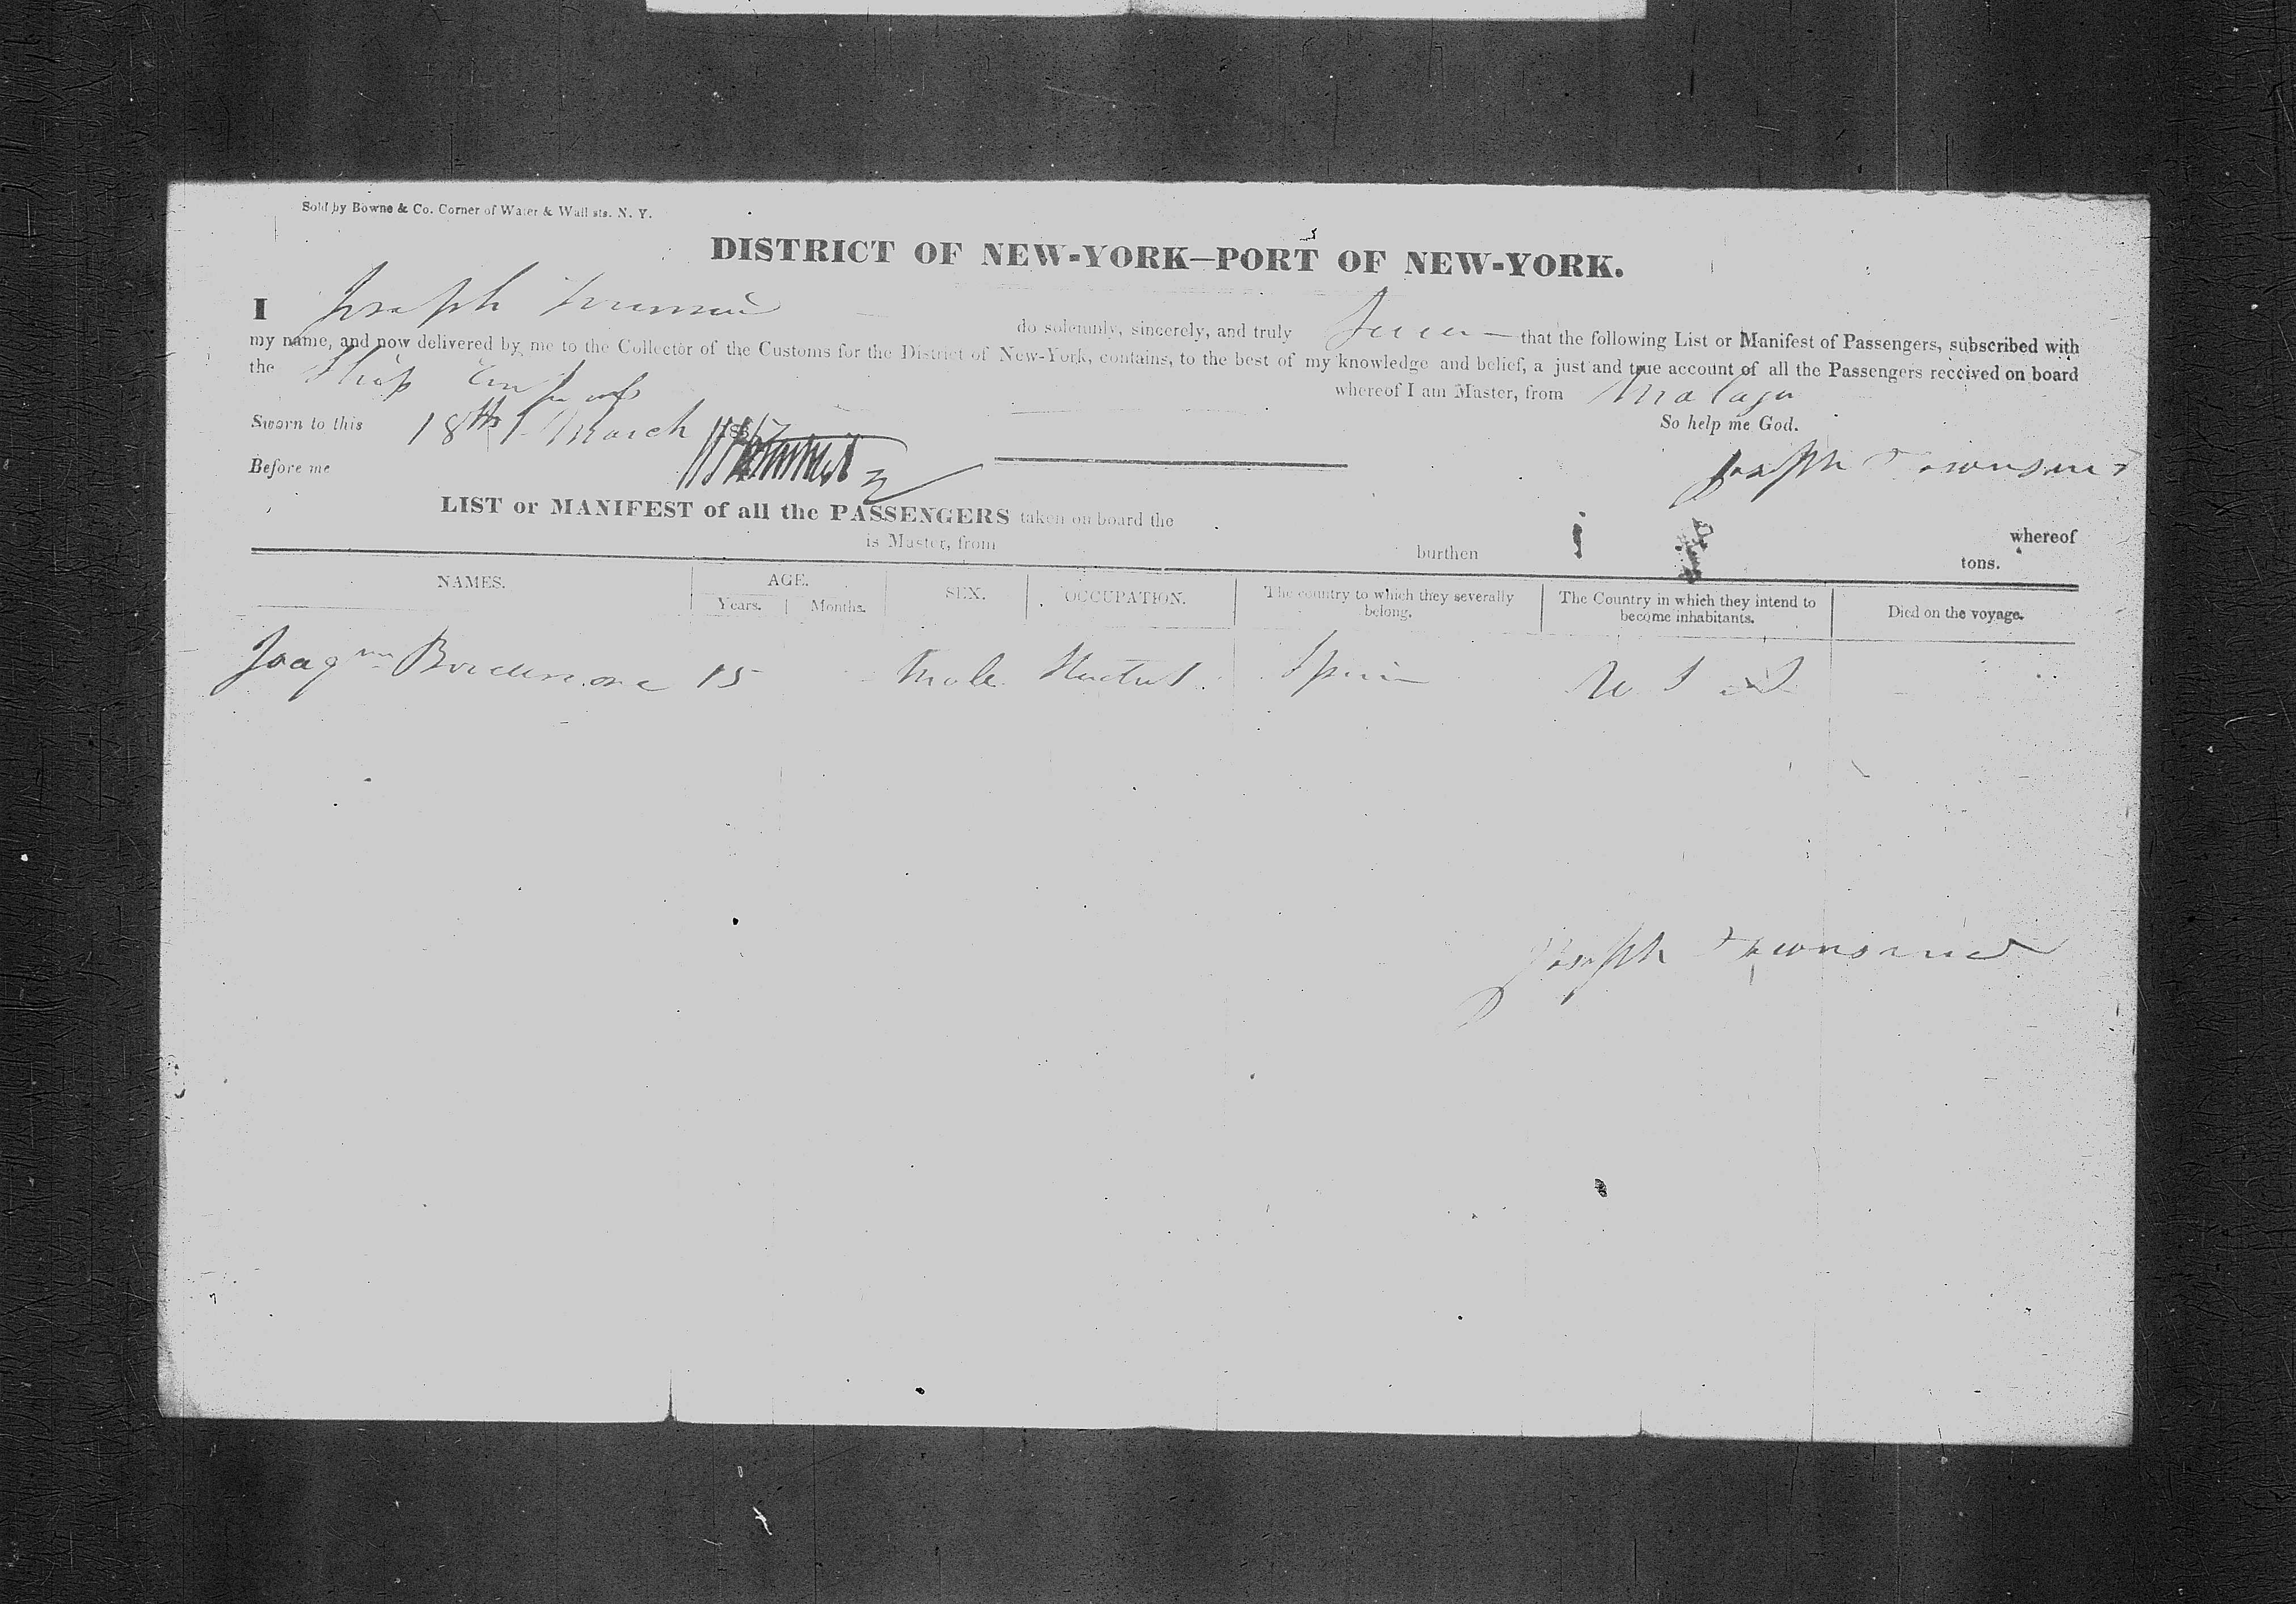 Sold by Bowne & Co. Corner of Water & Wall sts. N. Y.
DISTRICT OF NEW-YORK—PORT OF NEW-YORK.
I Joseph do solemnly, sincerely, and truly that the following List or Manifest of Passengers, subscribed with
my name, and now delivered by me to the Collector of the Customs for the District of New-York, contains, to the best of my knowledge and belief, a just and true account of all the Passengers received on board
the Ship whereof I am Master, from Malaga
Sworn to this 18th March 1837 So help me God.
Before me Joseph Townsend
LIST or MANIFEST of all the PASSENGERS taken on board the whereof
is Master, from burthen tons.
NAMES. AGE. SEX. OCCUPATION. The country to which they severally belong. The Country in which they intend to become inhabitants. Died on the voyage.
Years. Months.
Joaqm 15 Male Spain
Joseph Townsend